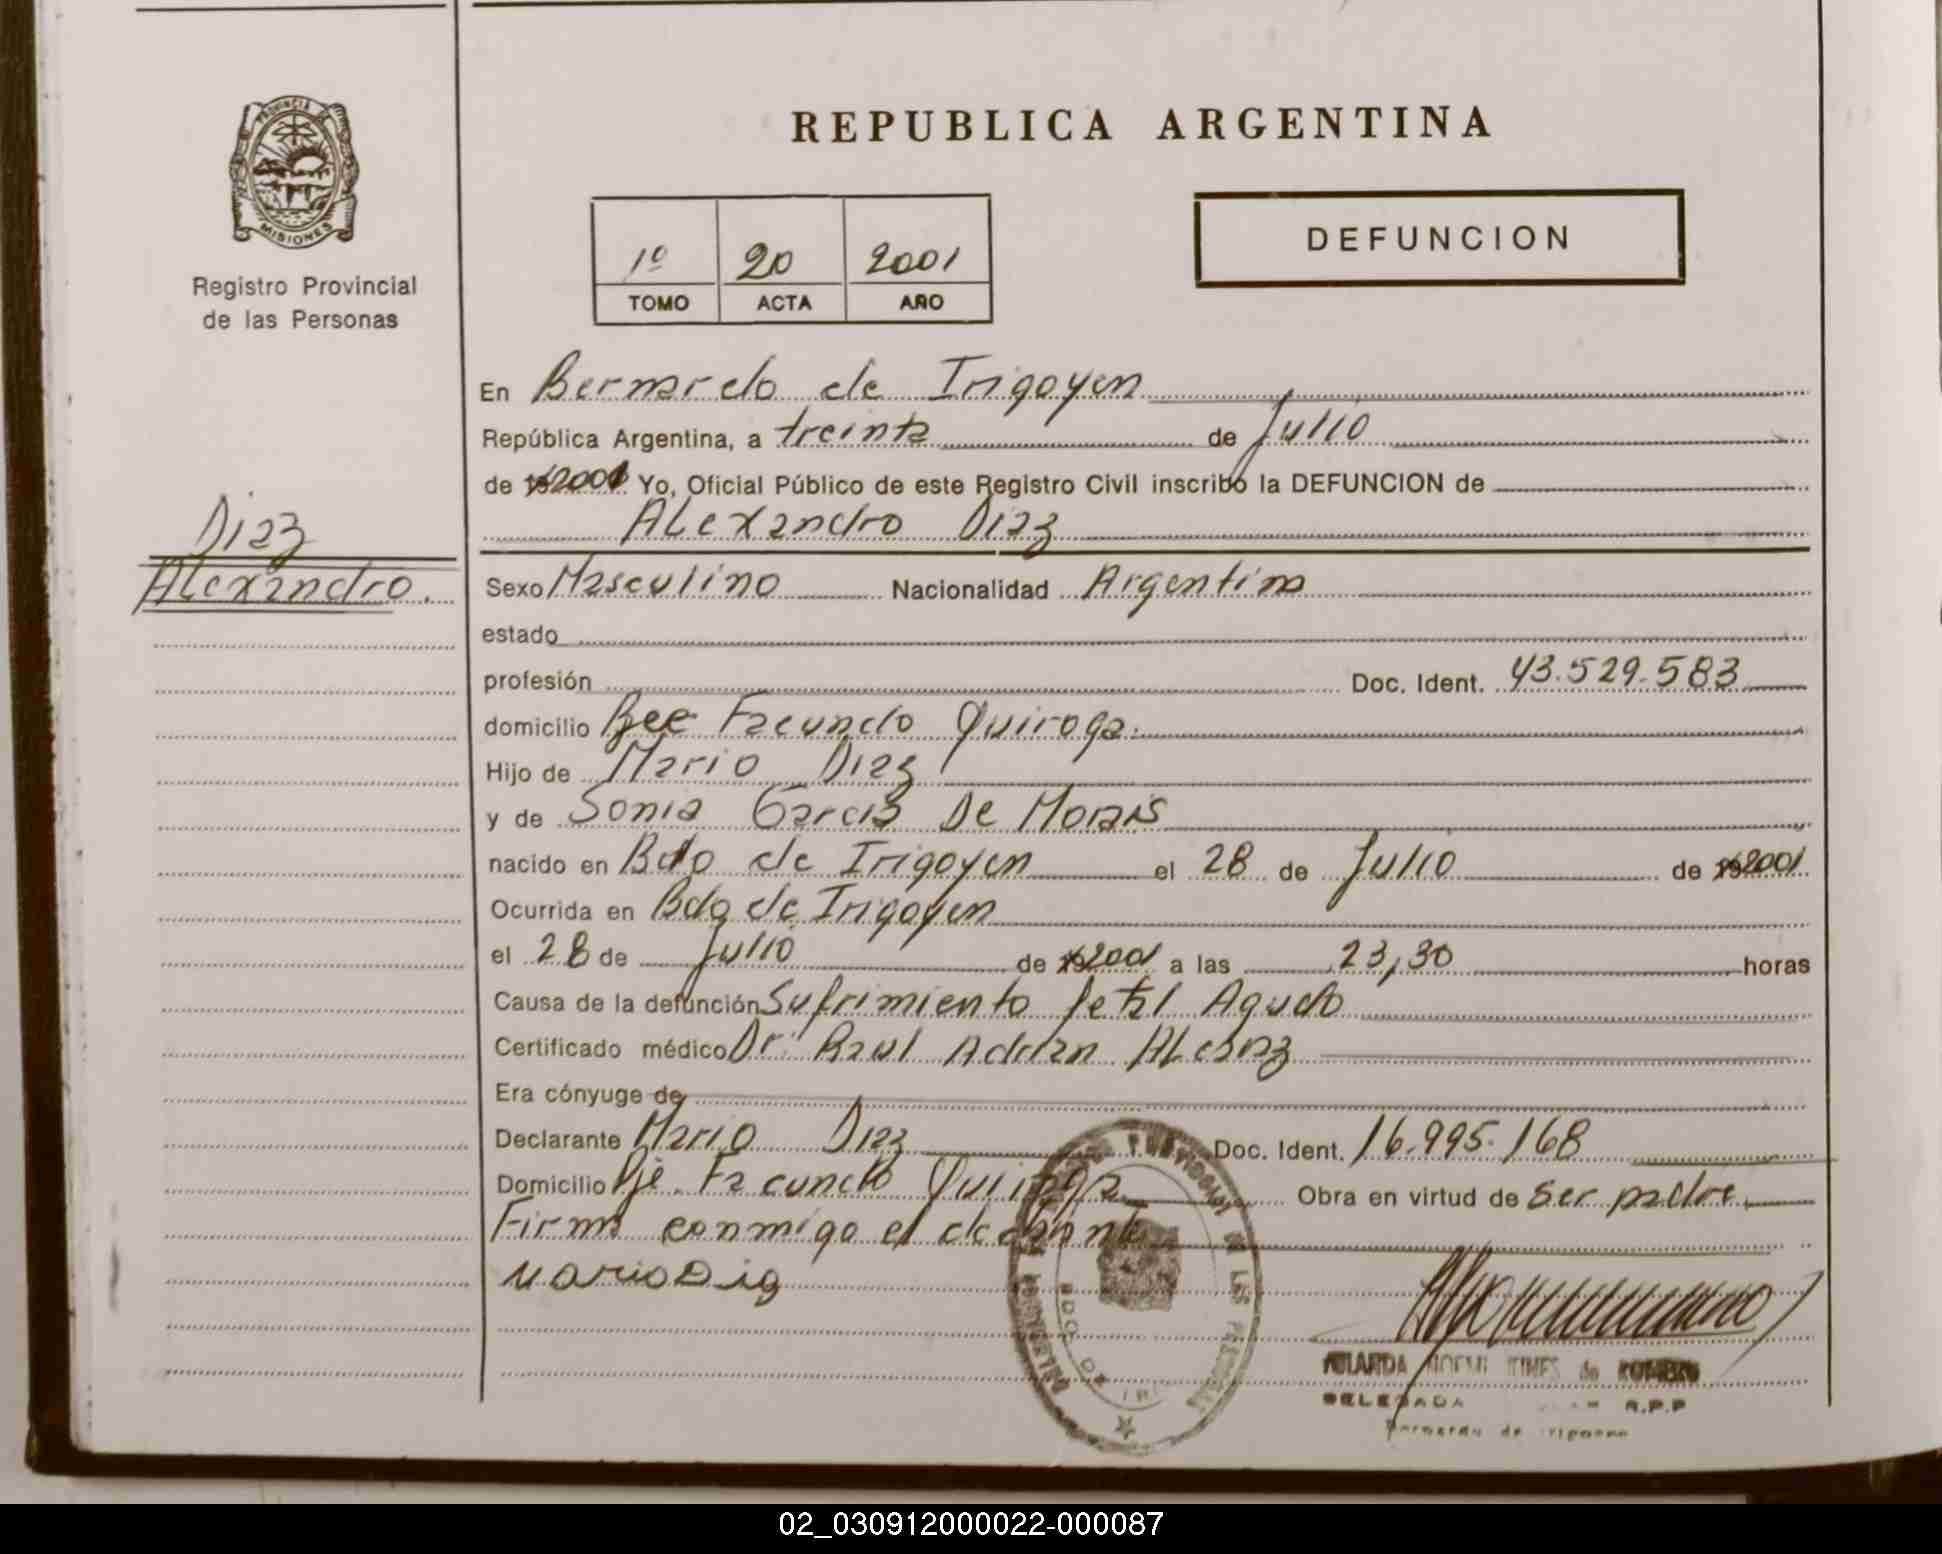 PROVINCIA DE
MISIONES
Registro Provincial
de las Personas
Diaz
Alexandro.
REPUBLICA ARGENTINA
1º 20 2001
TOMO ACTA AÑO
DEFUNCION
En Bernardo de Irigoyen
República Argentina, a treinta de Julio
de 2001 Yo, Oficial Público de este Registro Civil inscribo la DEFUNCION de
Alexandro Diaz
Sexo Masculino Nacionalidad Argentina
estado
profesión Doc. Ident. 43.529.583
domicilio Facundo Quiroga.
Hijo de Mario Diaz
y de Sonia Garcia De Morais
nacido en Bdo de Irigoyen el 28 de Julio de 2001
Ocurrida en Bdo de Irigoyen
el 28 de Julio de 2001 a las 23,30 horas
Causa de la defunción Sufrimiento fetal Agudo
Certificado médico Dr. Raul Adrian
Era cónyuge de
Declarante Mario Diaz Doc. Ident. 16.995.168
Domicilio Pje. Facundo Quiroga Obra en virtud de Ser padre
Firma conmigo el declarante
Mario Diaz
DELEGADA R.P.P
Bernardo de Irigoyen
02_030912000022-000087